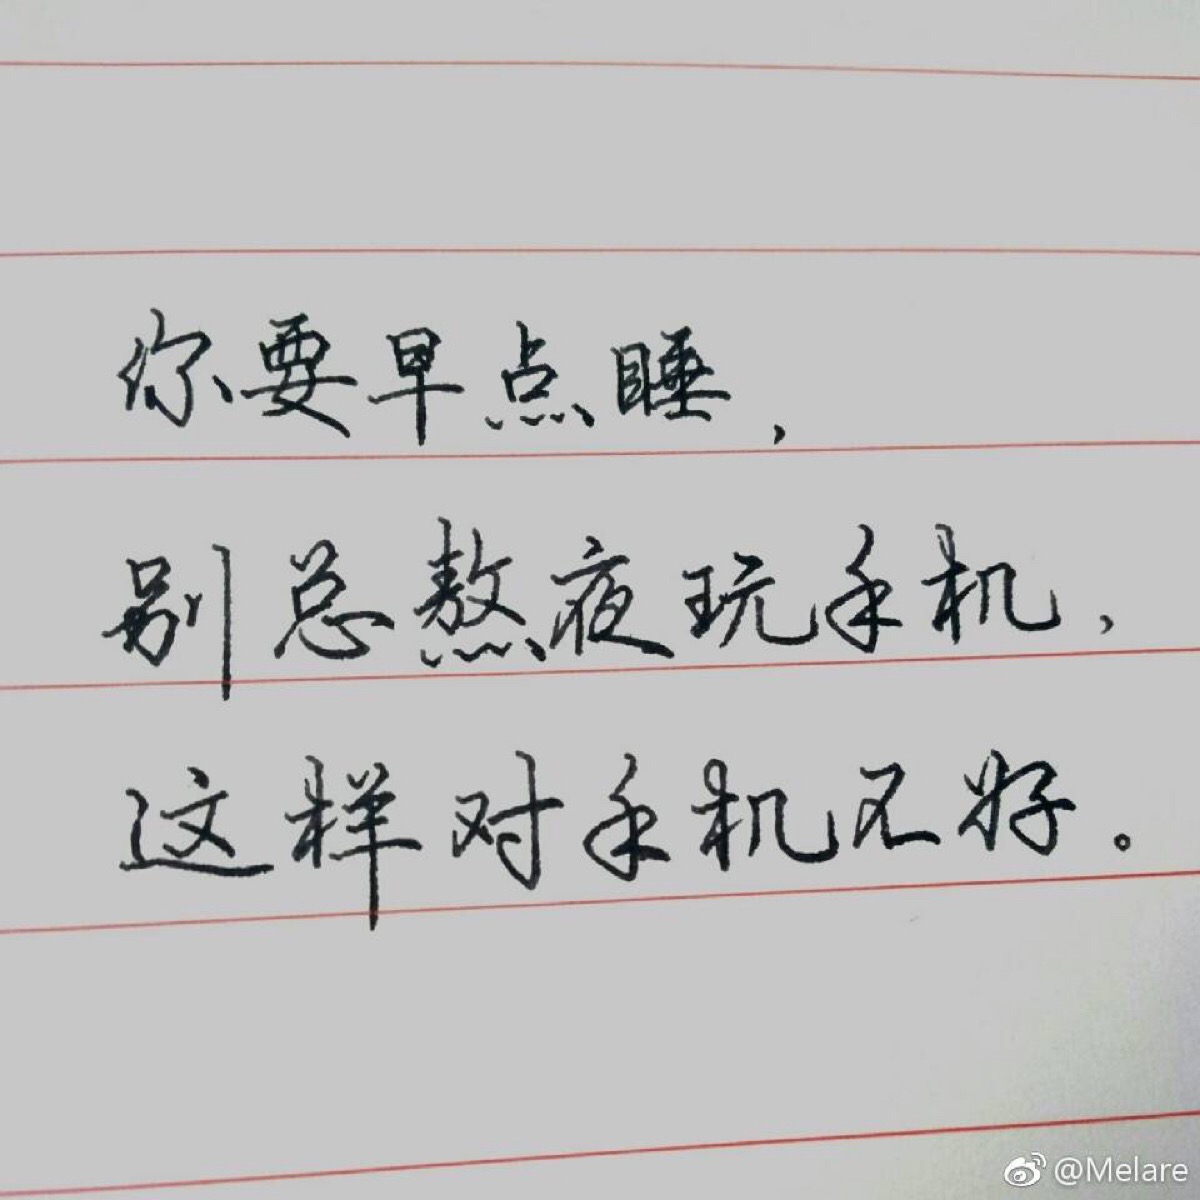 你要早点睡,
别总熬夜玩手机,
这样对手机不好。
@Melare